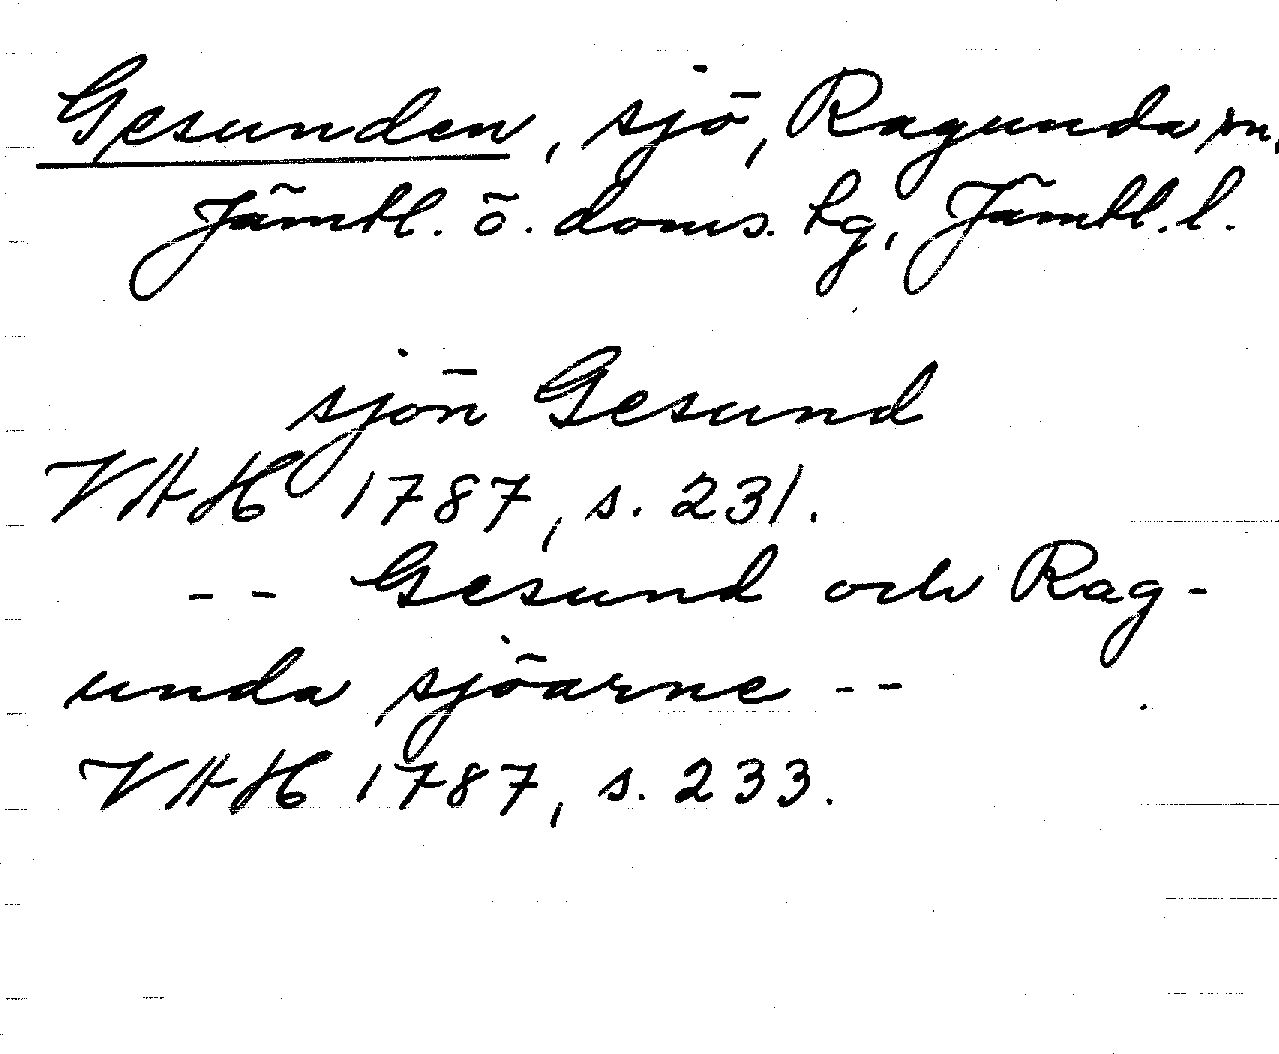 Gesunden, sjö, Ragunda sn,
Jämtl. ö. doms. tg, Jämtl. l.
sjön Gesund
VAH 1787, s. 231.
-- Gesund och Rag-
unda sjöarne --
VAH 1787, s. 233.